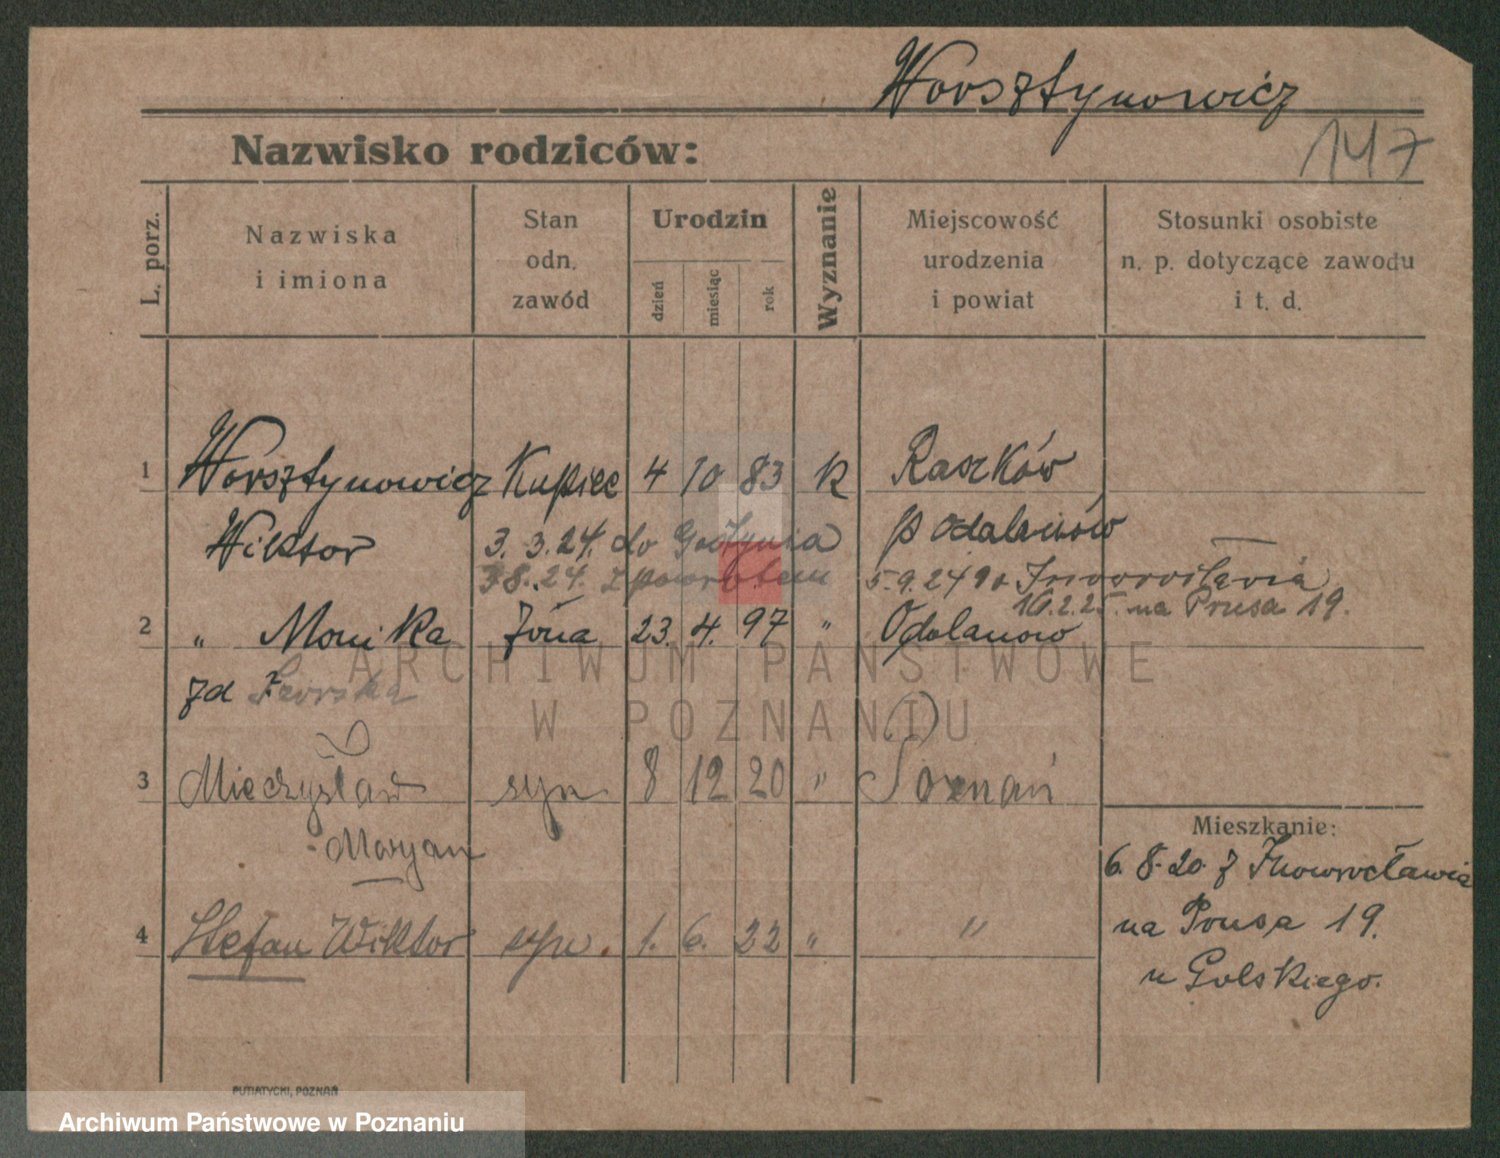 Worsztynowicz
147
Nazwisko rodziców:
L. porz.
Nazwiska
i imiona
Stan
odn.
zawód
Urodzin
dzień
miesiąc
rok
Wyznanie
Miejscowość
urodzenia
i powiat
Stosunki osobiste
n. p. dotyczące zawodu
i t. d.
1 Worsztynowicz Kupiec 4 10 83 k Raszków
Wiktor 3. 3. 24. do Gostynia p Odalanów
3.8.24. z powrotem 5.9.24 do Inowrocławia
16.2.25. na Prusa 19.
2 " Monika żona 23. 4. 97 " Odolanow
zd
3 Mieczysław syn 8 12 20 " Poznań
Maryan
Mieszkanie:
6. 8. 20 z Inowrocławia
4 Stefan Wiktor syn. 1. 6. 22 " "
na Prusa 19.
u Golskiego.
PUTIATYCKI, POZNAŃ
ARCHIWUM PAŃSTWOWE
W POZNANIU
Archiwum Państwowe w Poznaniu